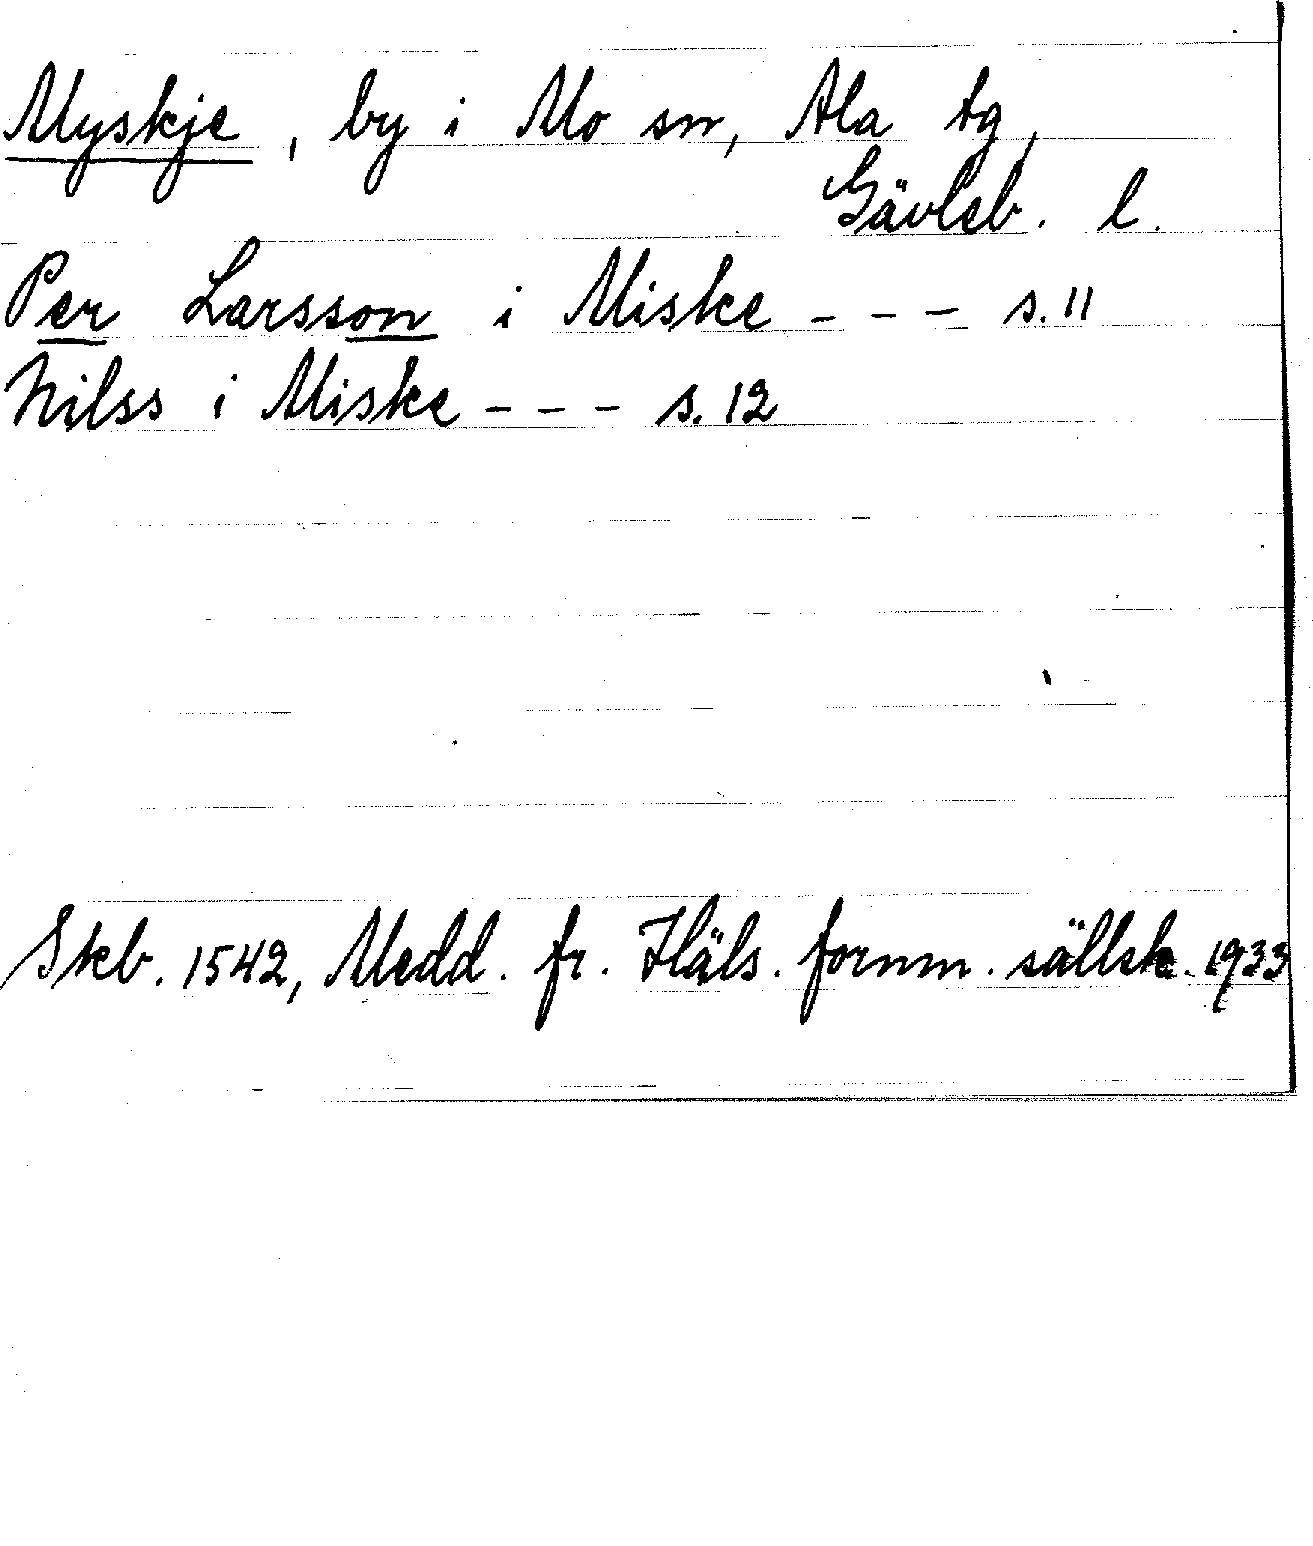 Myskje, by i Mo sn, Ala tg,
Gävleb. l.
Per Larsson i Miske - - - s. 11
Nilss i Miske - - - s. 12
Skb. 1542, Medd. fr. Häls. fornm. sällsk. 1933